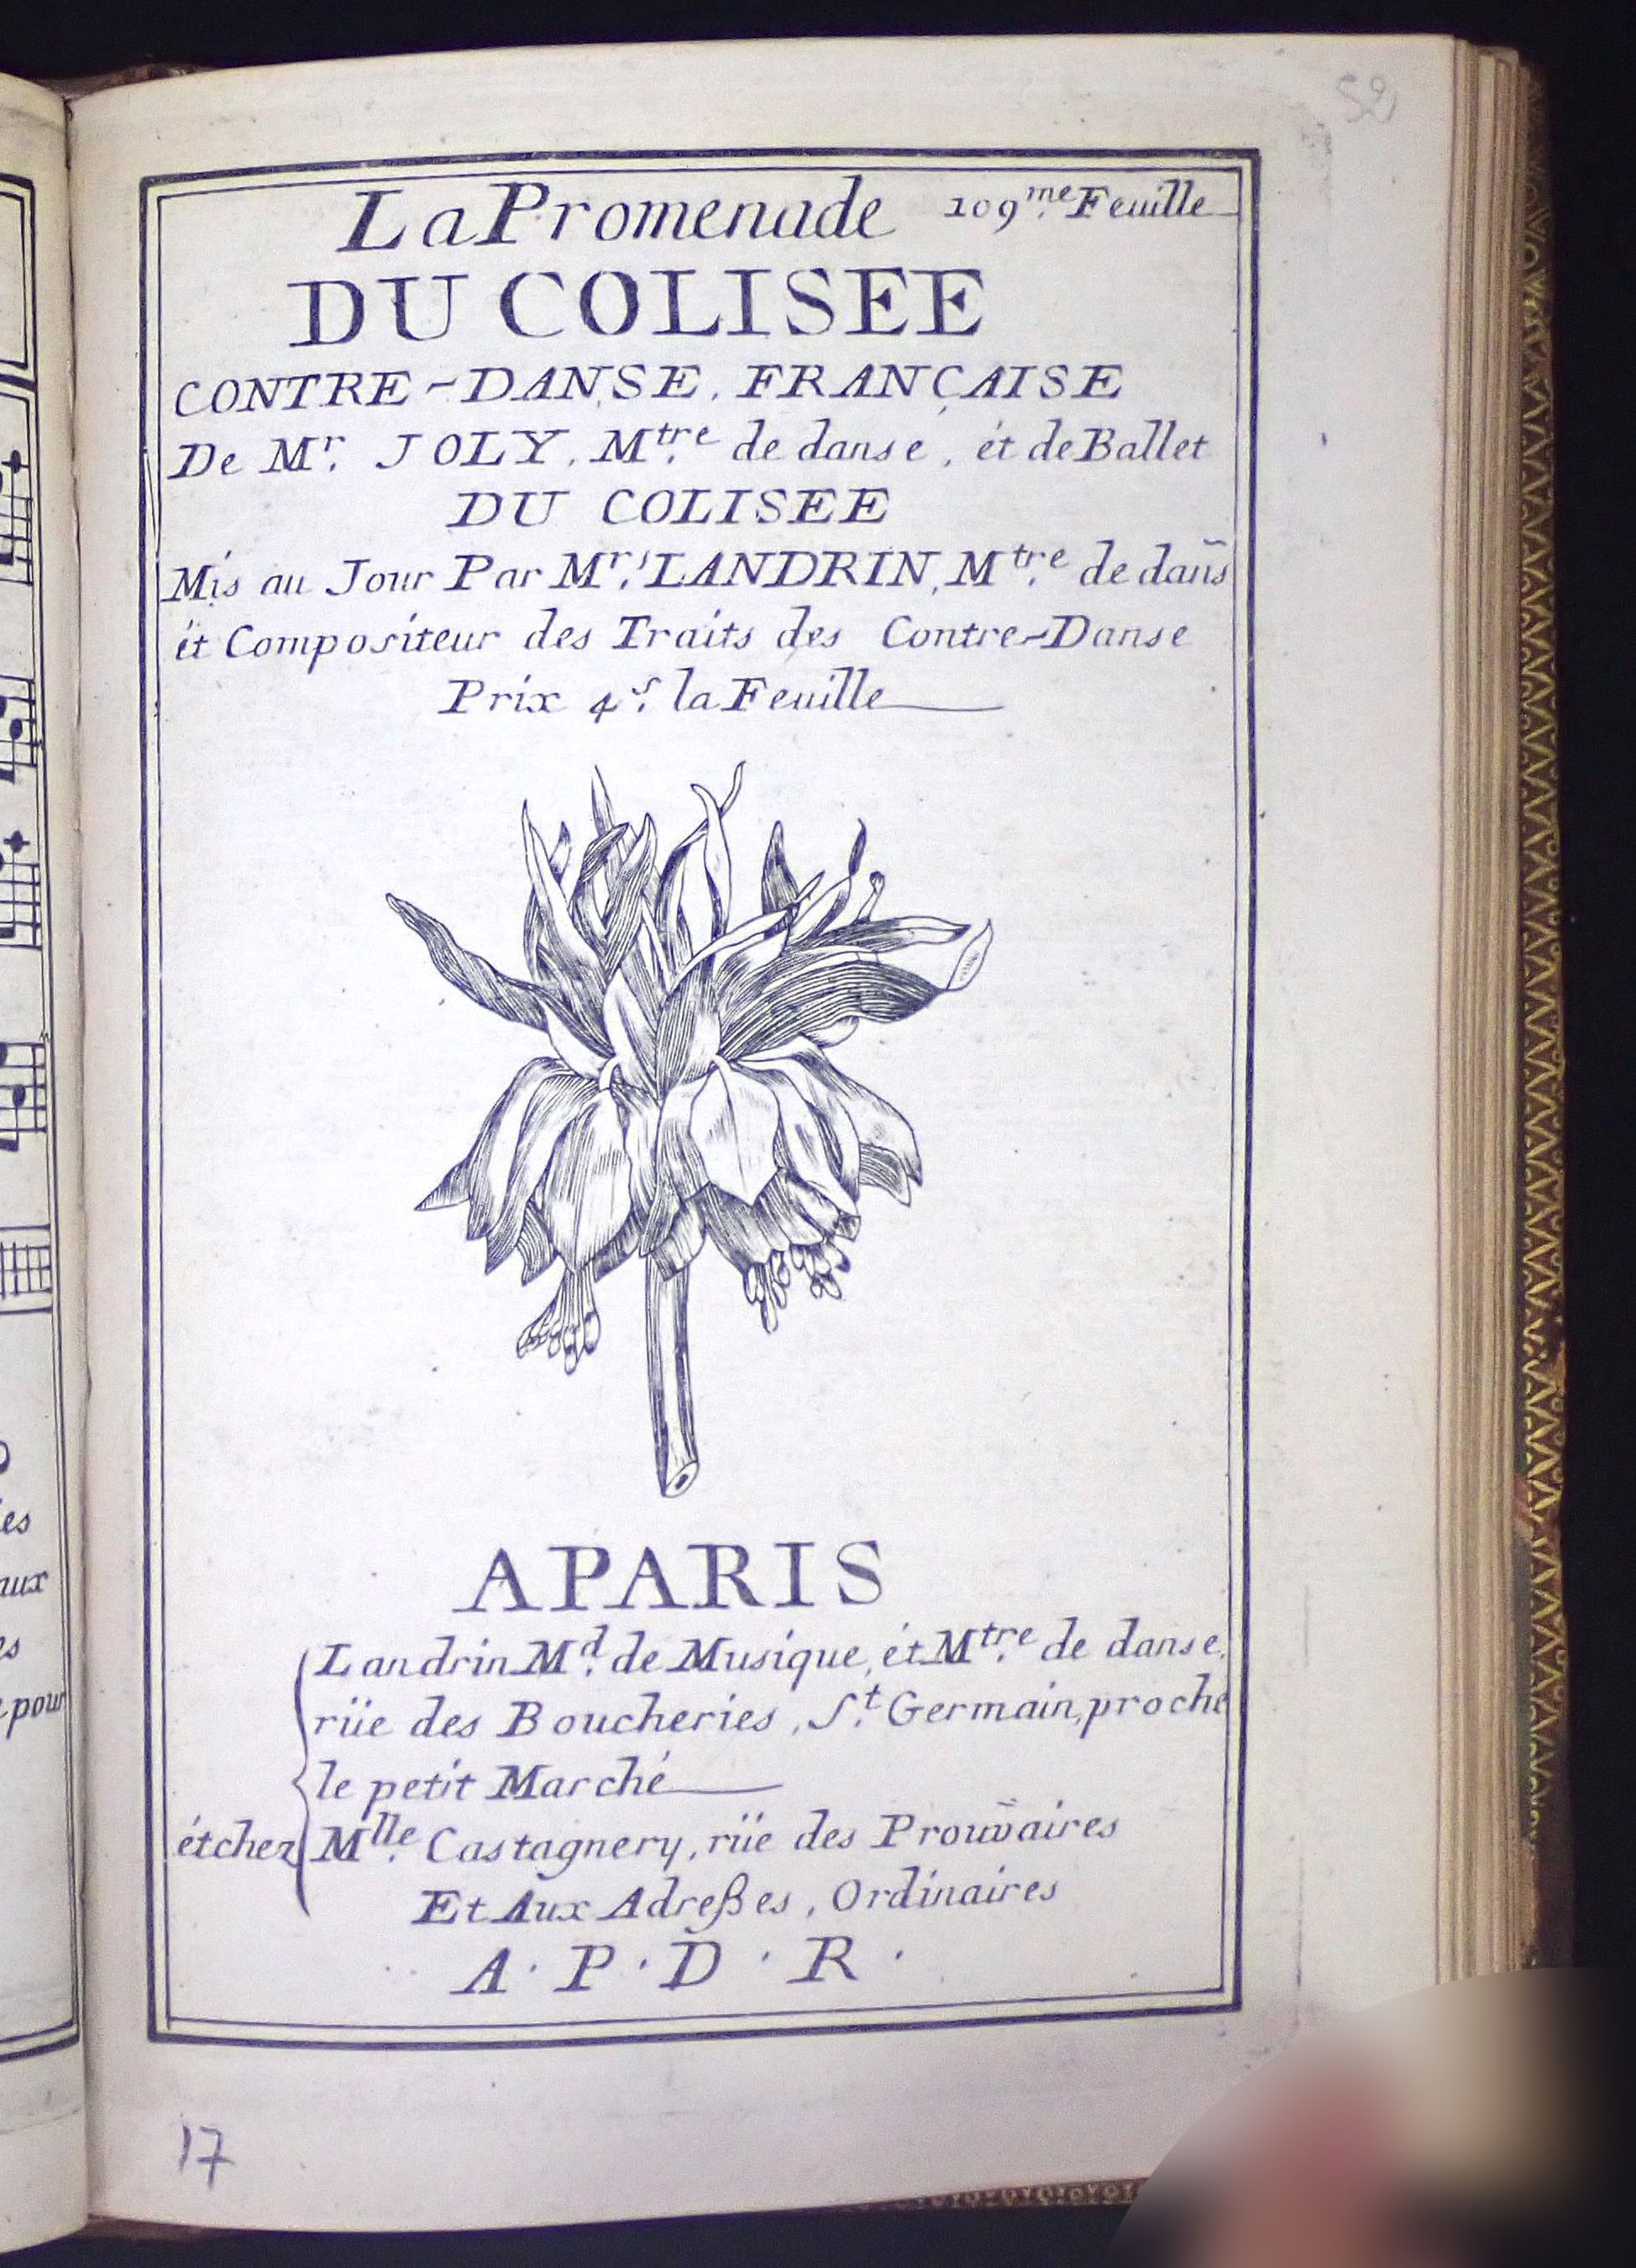 52
La Promenade 109.me Feuille
DU COLISEE
CONTRE-DANSE, FRANÇAISE
De Mr. JOLY, Mtre. de danse, ét de Ballet
DU COLISEE
Mis au Jour Par Mr. LANDRIN, Mtre. de dañs
ët Compositeur des Traits des Contre-Danse
Prix 4.s la Feuille
A PARIS
Landrin Md. de Musique, ét Mtre. de danse,
rüe des Boucheries, St. Germain, proche
le petit Marché
ét chez Mlle. Castagnery, rüe des Prouvaires
Et Aux Adreßes, Ordinaires
A. P. D. R.
17
es
aux
es
pour